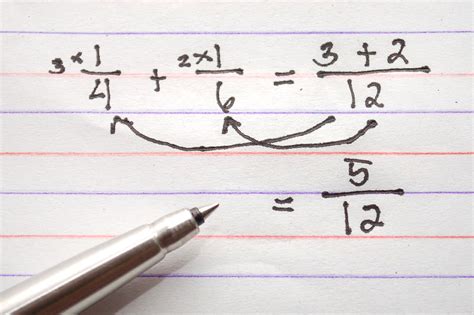 3 × 1/4 + 2 × 1/6 = 3 + 2/12
= 5/12